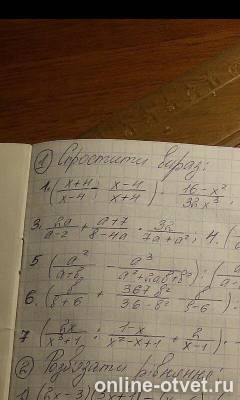 ① Спростити вираз:
1. (x+4/x-4 - x-4/x+4) · 16-x²/32x³
3. 2a/a-2 + a+7/8-4a · 32/7a+a²; 4. (
5 (a²/a+b - a³/a²+2ab+b²) : (
6. (b/b+6 + 36+b²/36-b² - b/b-6) ·
7 (2x/x³+1 : 1-x/x²-x+1 + 2/x-1) ·
② Розвʼязати рівняння:
1) (2x-3)(3x+1)
online-otvet.ru